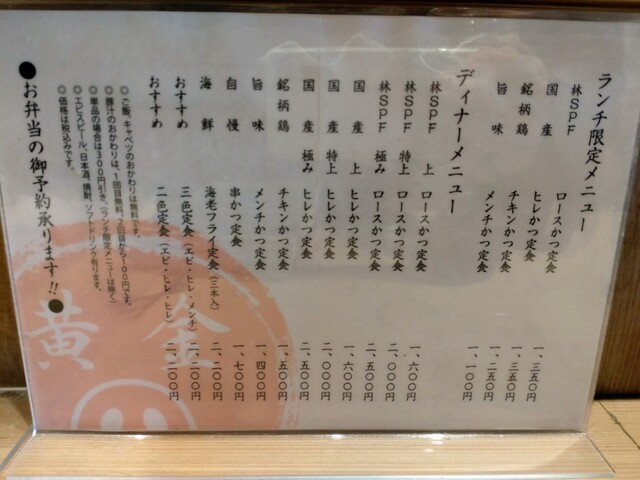 ランチ限定メニュー
林SPF ロースかつ定食 一、三五〇円
国産 ヒレかつ定食 一、三五〇円
銘柄鶏 チキンかつ定食 一、二五〇円
旨味 メンチかつ定食 一、一〇〇円
ディナーメニュー
林SPF 上 ロースかつ定食 一、六〇〇円
林SPF 特上 ロースかつ定食 二、〇〇〇円
林SPF 極み ロースかつ定食 二、五〇〇円
国産 上 ヒレかつ定食 一、六〇〇円
国産 特上 ヒレかつ定食 二、〇〇〇円
国産 極み ヒレかつ定食 二、五〇〇円
銘柄鶏 チキンかつ定食 一、五〇〇円
旨味 メンチかつ定食 一、四〇〇円
自慢 串かつ定食 一、七〇〇円
海鮮 海老フライ定食(三本入) 二、二〇〇円
おすすめ 三色定食(エビ・ヒレ・メンチ) 二、二〇〇円
おすすめ 二色定食(エビ・ヒレ・ヒレ)
◎ご飯、キャベツのおかわりは無料です。
◎豚汁のおかわりは、1回目無料、2回目から100円です。
◎単品の場合は300円引き、(ランチ限定メニューは除く)
◎エビスビール、日本酒、焼酎、ソフトドリンク有ります。
◎価格は税込みです。
●お弁当の御予約承ります!!●
黄金